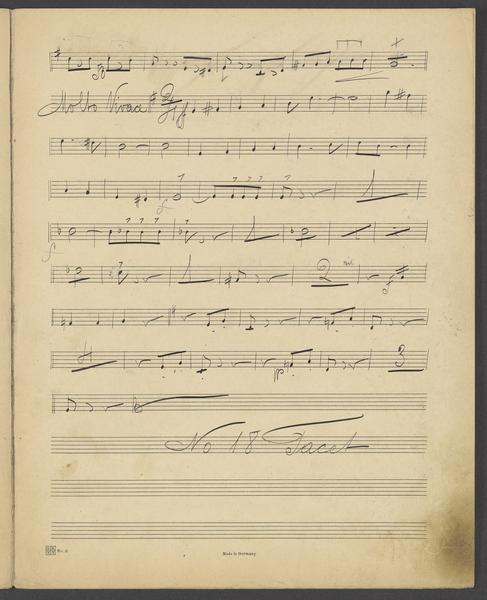 Molto Vivace
ff
1
1
1
2
4
3
No 18 Tacet
No. 6
Made in Germany